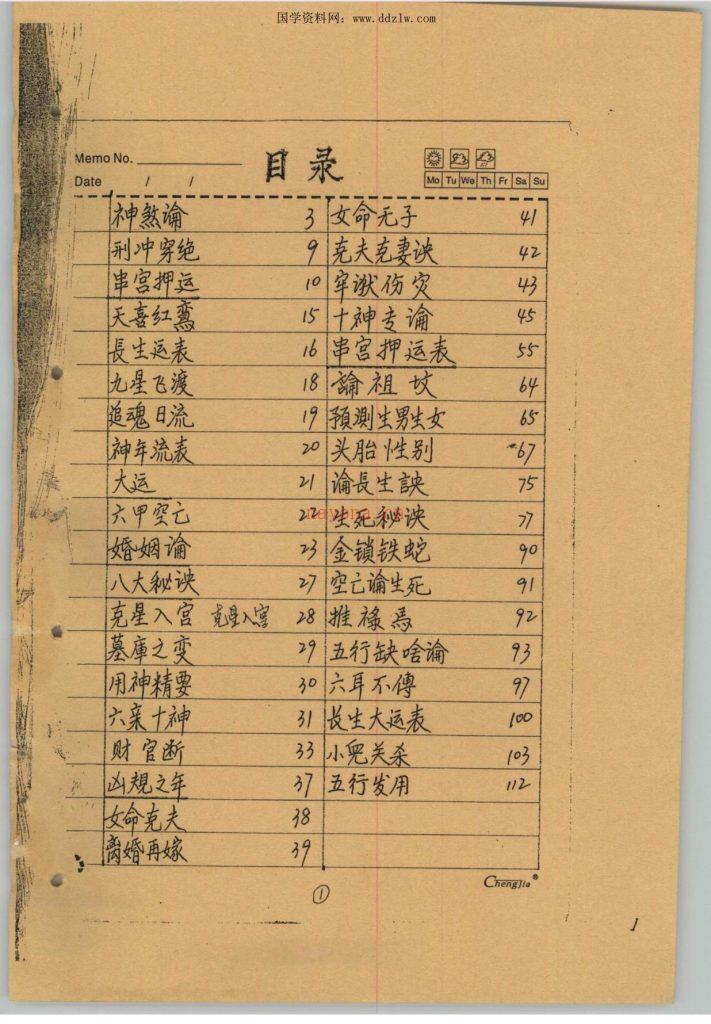 国学资料网：www.ddzlw.com
Memo No. 目录
Date / / Mo Tu We Th Fr Sa Su
神煞論 3
刑冲穿绝 9
串宫押运 10
天喜红鸾 15
長生运表 16
九星飞渡 18
追魂日流 19
神年流表 20
大运 21
六甲空亡 22
婚姻論 23
八大秘诀 27
克星入宫 克星入宫 28
墓庫之变 29
用神精要 30
六亲十神 31
财官断 33
凶规之年 37
女命克夫 38
离婚再嫁 39
女命无子 41
克夫克妻诀 42
牢狱伤灾 43
十神专论 45
串宫押运表 55
論祖坟 64
預测生男生女 65
头胎性别 67
论長生訣 75
生死秘诀 77
金锁铁蛇 90
空亡论生死 91
推禄馬 92
五行缺啥論 93
六耳不傳 97
長生大运表 100
小兒关杀 103
五行发用 112
ChengJia®
①
1